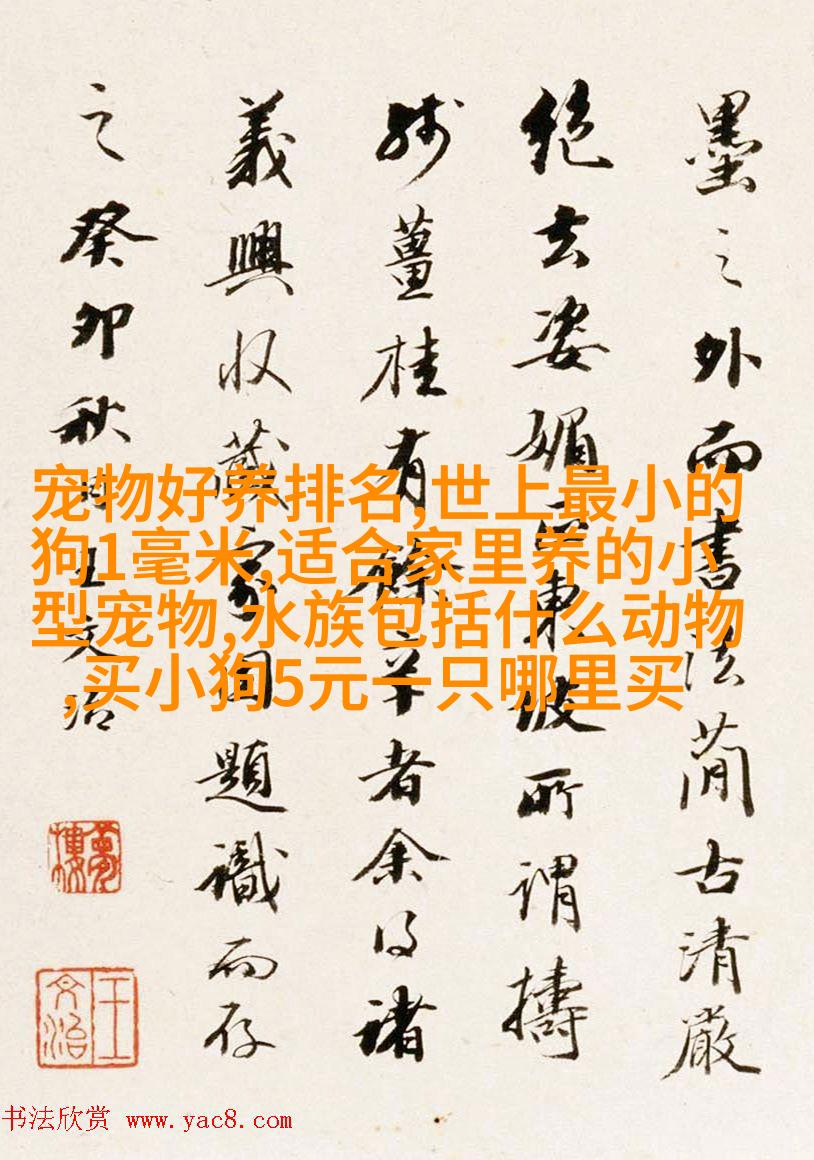 墨之外而書法簡古清嚴
絶去姿媚正東坡所謂擣
殘薑桂有餘辛者余得諸
義興收藏家因題識而存
之癸卯秋王文治
夢樓
王文治
宠物好养排名,世上最小的
狗1毫米,适合家里养的小
型宠物,水族包括什么动物
,买小狗5元一只哪里买
书法欣赏 www.yac8.com